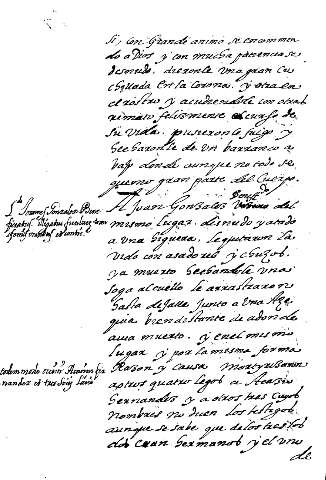 si, con grande animo se encomen
do a Dios y con mucha paciencia se
desnudo, dieronle una gran cu
chillada en la corona, y otra en
el rostro y acudiendole con otras
remato felismente el curso de
su vida. pusieronle fuego y
hecharonle de un barranco a
vajo donde aunque no todo se
quemo gran parte del cuerpo.
A Juan Gonzales vezino del
mismo lugar, disnudo y atado
a una higuera, le quitaron la
vida con asadores y chuzos.
ya muerto hechandole una
soga al cuello le arrastraron
hasta la calle junto a una aze
quia bien distante de adonde
avia muerto. y en el mismo
lugar y por la misma forma
Razon y causa martyrizaron
a otros quatro legos a
Hernandes y a otros tres cuyos
nombres no dicen los testigos.
aunque se sabe que de los tres los
dos eran hermanos y el uno
de
Joannes Gonzales